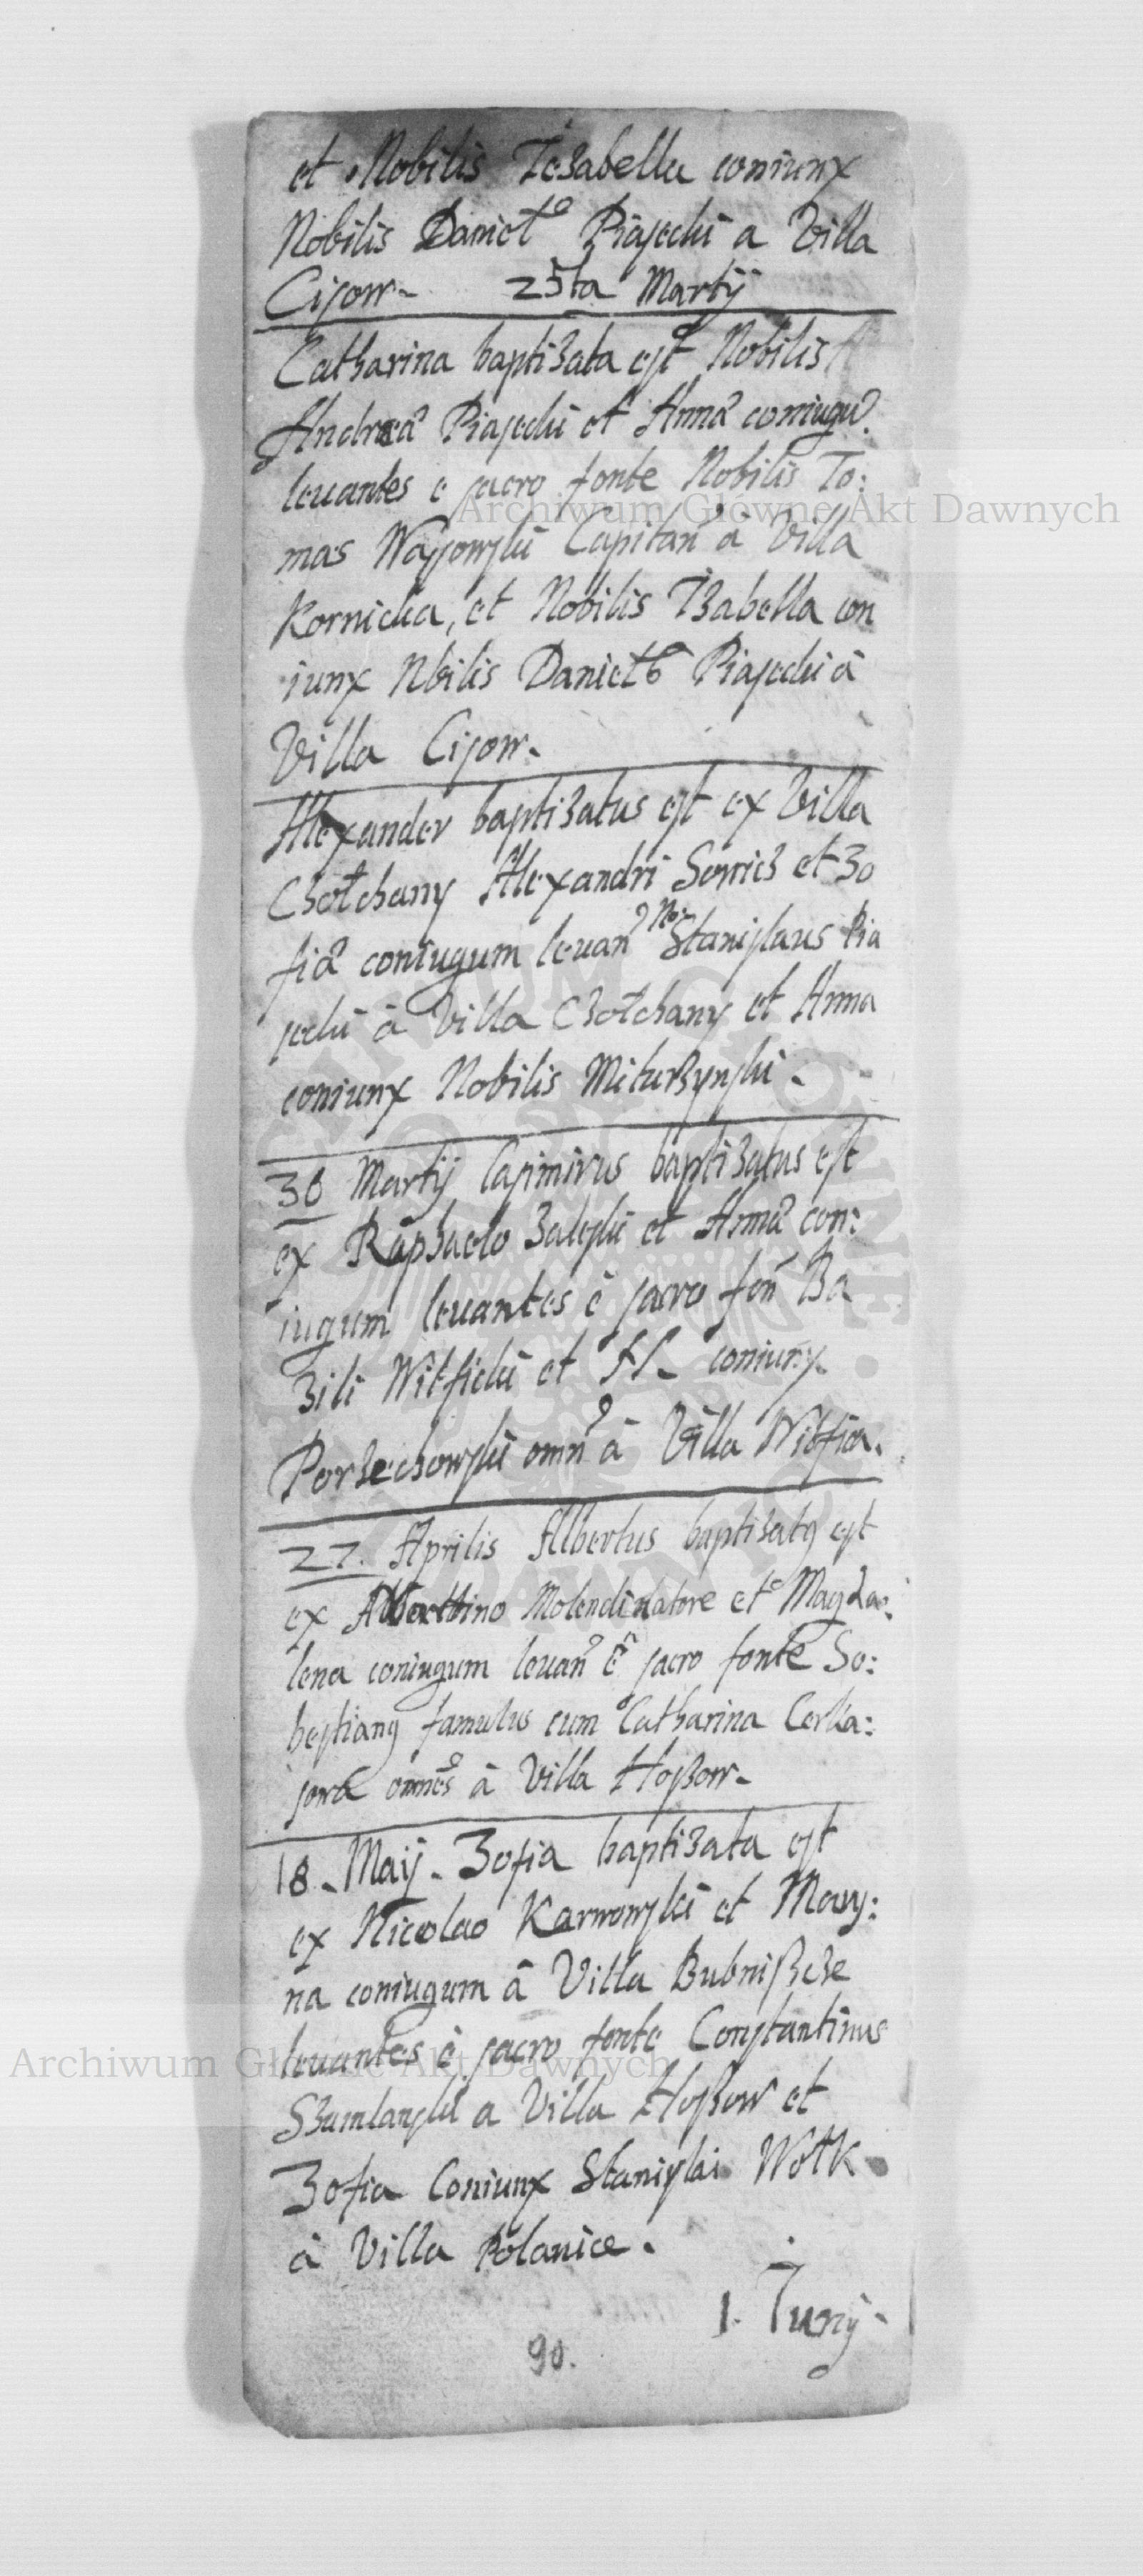 et Nobilis Iesabella coniunx
Nobilis Daniel° Piasecki a Villa
Cisow- 25ta Martij
Catharina baptisata est Nobilis
Andreā Piasecki et Annā coniugū.
leuantes e sacro fonte Nobilis To:
mas Wąsowski Capitan à Villa
Kornicka, et Nobilis Isabella con
iunx Nbilis Daniel Piasecki à
Villa Cisow-
Alexander baptisatus est ex Villa
Chotchany Alexandri Sovics et Zo
fiā coniugum leuan? No: Stanislaus Pia
secki à Villa Chotchany et Anna
coniunx Nobilis Miturzynski-
30 Martij Casimirus baptisatus est
ex Raphaelo Zaleski et Annā con:
iugum leuantes è sacro fon Ba
zili Witficki et A- coniunx
Porzechowski omn? à Villa Witfica.
27. Aprilis Albertus baptisatg est
ex Albertino Molendinatore et Magda:
lena coniugum leuan? è sacro fonte Se:
bestiang famulus cum Catharina Cerka:
sowa omnes à Villa Hoszow-
18- Maij- Zofia baptisata est
ex Nicolao Karwowski et Mary:
na coniugum à Villa Bubniszcze
leuantes è sacro fonte Constantinus
Szumlanski a Villa Hoszow et
Zofia Coniunx Stanislai Wołk
à Villa Polanice.
1. Junij-
90.
Archiwum Główne Akt Dawnych
Archiwum Główne Akt Dawnych